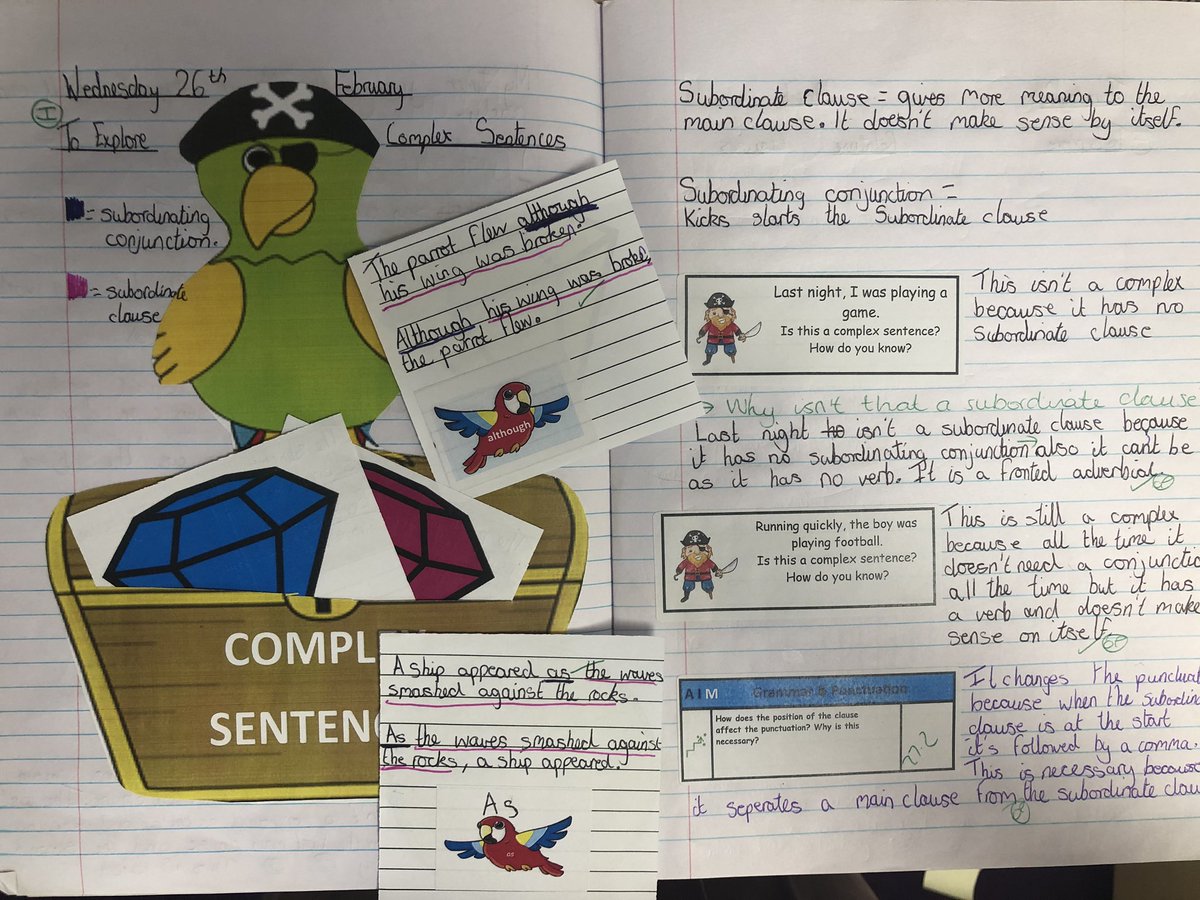 Wednesday 26th February
I
To Explore Complex Sentences
= subordinating
conjunction.
= subordinate
clause
The parrot flew although
his wing was broken.
Although his wing was broken,
the parrot flew.
although
COMPL
SENTENC
A ship appeared as the waves
smashed against the rocks.
As the waves smashed against
the rocks, a ship appeared.
As
as
Subordinate clause = gives more meaning to the
main clause. It doesn't make sense by itself.
Subordinating conjunction =
Kicks starts the Subordinate clause
Last night, I was playing a
game.
Is this a complex sentence?
How do you know?
This isn't a complex
because it has no
subordinate clause
→ Why isn't that a subordinate clause
Last night isn't a subordinate clause because
it has no subordinating conjunction also it cant be
as it has no verb. It is a fronted adverbial.
Running quickly, the boy was
playing football.
Is this a complex sentence?
How do you know?
This is still a complex
because all the time it
doesn't need a conjunctio
all the time but it has
a verb and doesn't make
sense on itself.
AIM Grammar & Punctuation
How does the position of the clause
affect the punctuation? Why is this
necessary?
27.2
It changes the punctuat
because when the subordin
clause is at the start
it's followed by a comma.
This is necessary because
it seperates a main clause from the subordinate clau